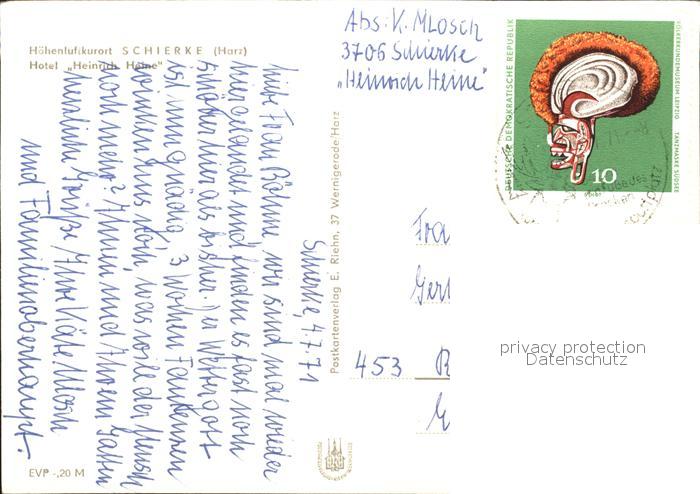 Höhenluftkurort SCHIERKE (Harz)
Hotel „Heinrich Heine"
Abs: K. Mlosch
3706 Schierke
„Heinrich Heine"
DEUTSCHE DEMOKRATISCHE REPUBLIK
VÖLKERKUNDEMUSEUM LEIPZIG TANZMASKE SÜDSEE
10
Schierke, 4.7.71
Liebe Frau Böhme, wir sind mal wieder
hier gelandet und finden es fast noch
schöner hier als bisher. Der Wettergott
ist uns gnädig 3 Wochen Faulenzen
winken uns noch, was will der Mensch
noch mehr? Ihnen und Ihrem Gatten
herzliche Grüße Ihre Käte Mlosch
und Familienoberhaupt.
Postkartenverlag E. Riehn, 37 Wernigerode/Harz
Fra
Ger
453 R
EVP -,20 M
privacy protection
Datenschutz